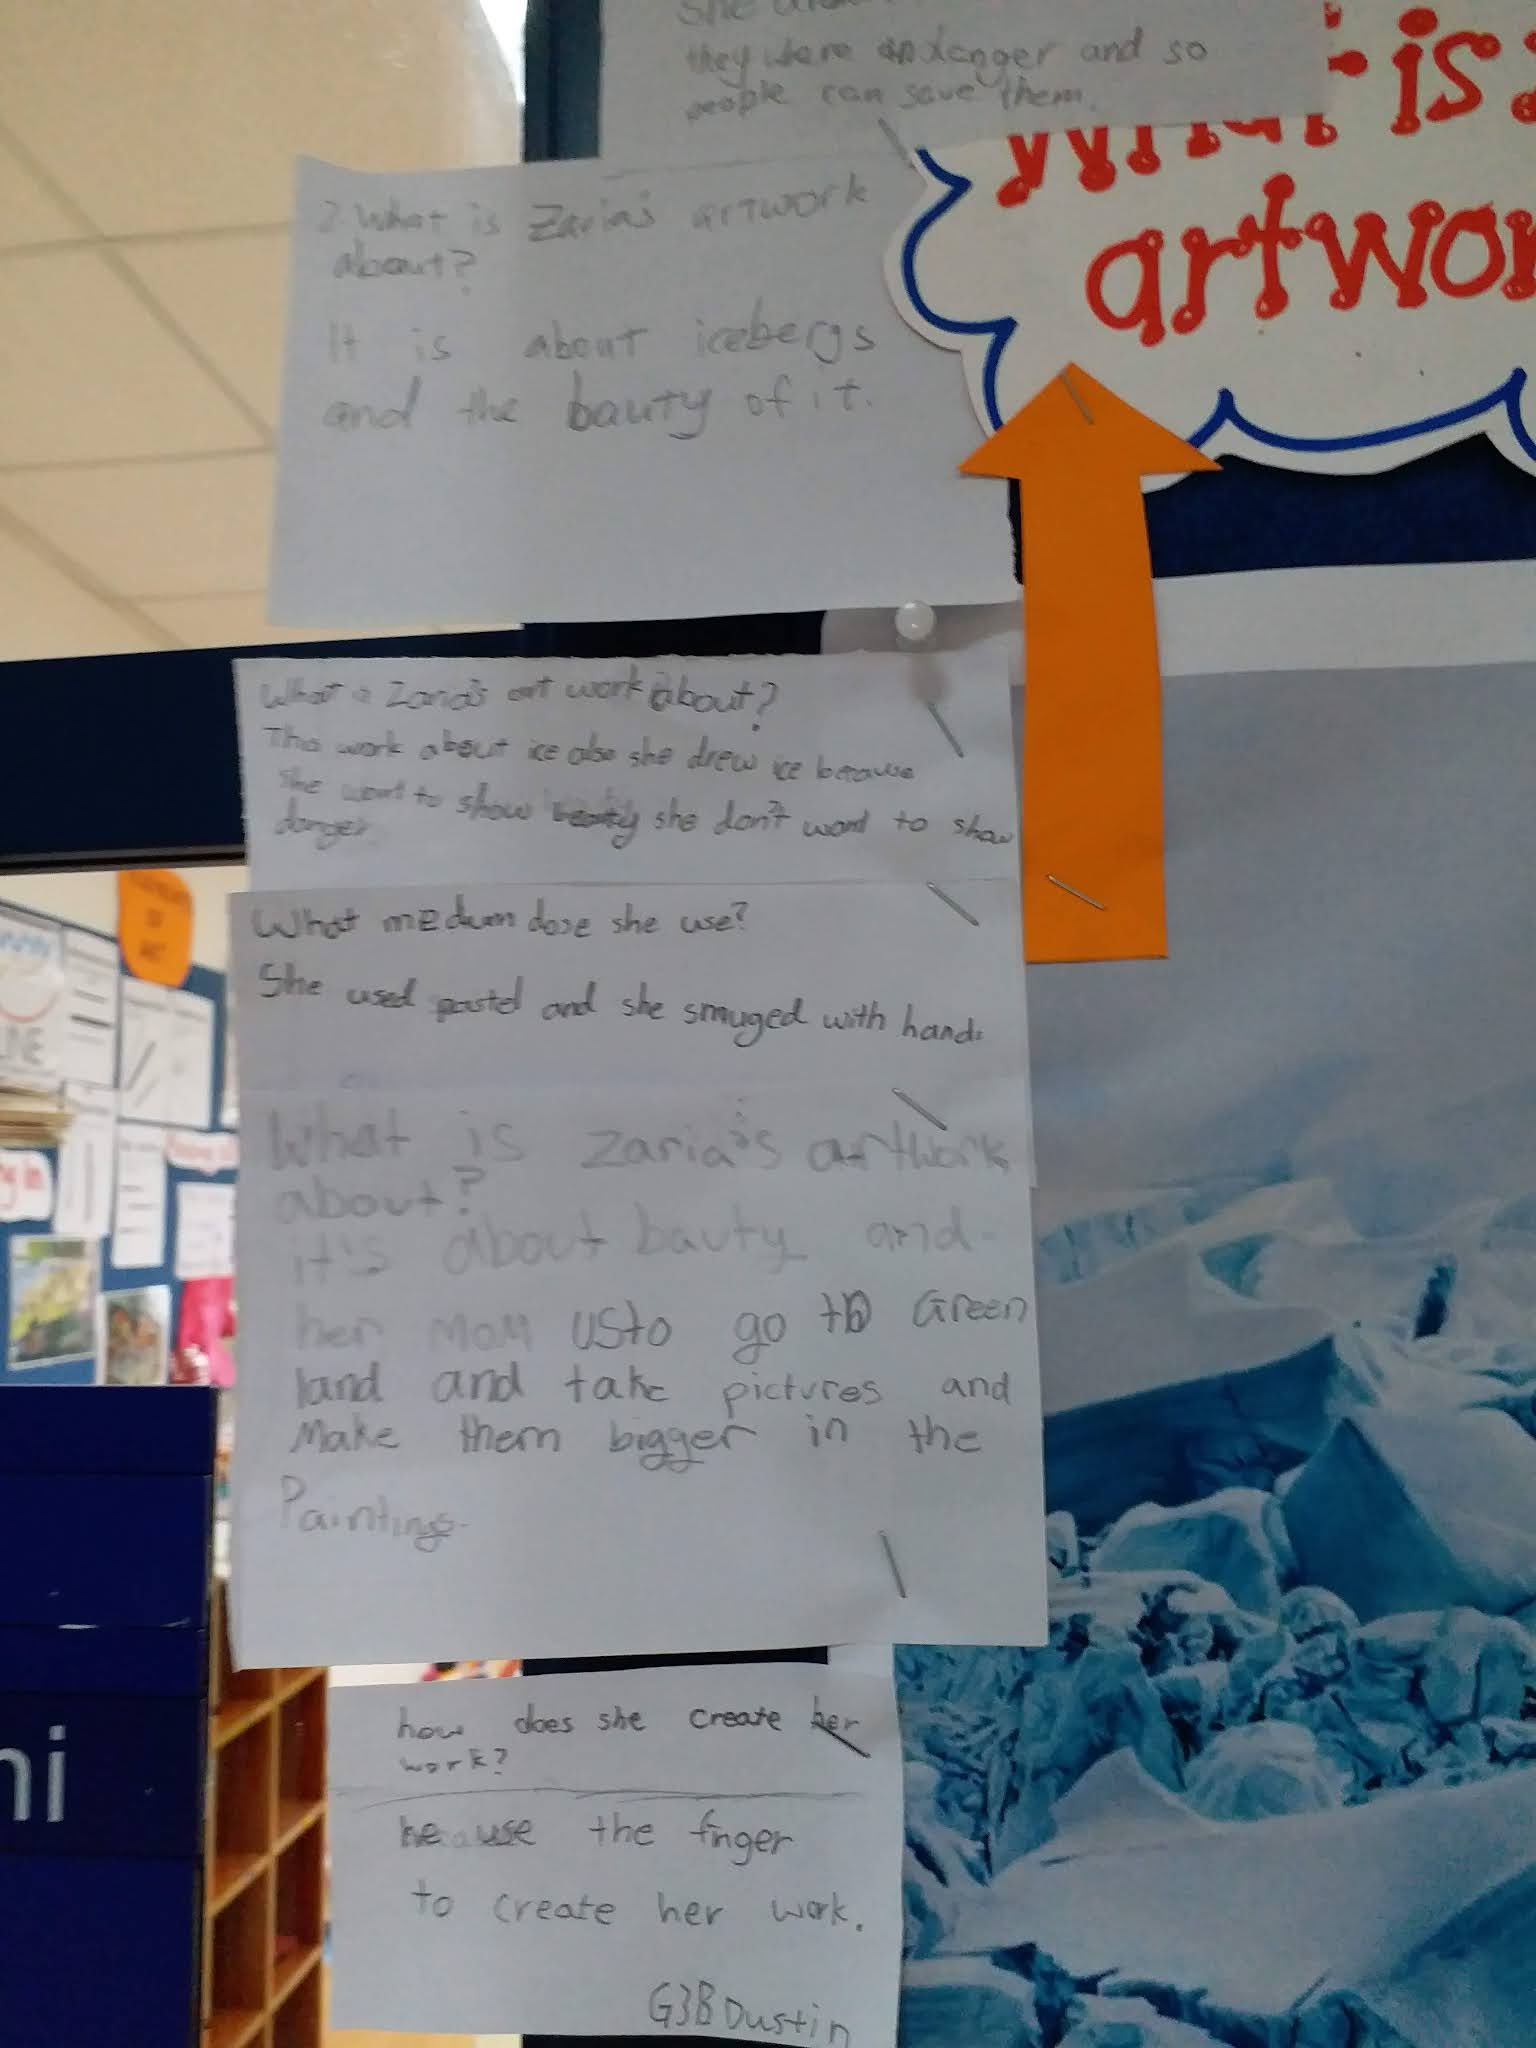 they were endenger and so
people can save them.
is
artwor
2 What is Zaria's artwork
about?
It is about icebergs
and the bauty of it.
What is Zaria's art work about?
This work about ice also she drew ice because
she want to show beauty she don't want to show
danger.
What medum dose she use?
She used pastel and she smuged with hand.
What is Zaria's artwork
about?
it's about bauty and
her mom usto go to Green
land and take pictures and
Make them bigger in the
Paintings.
how does she create her
work?
because the finger
to create her work.
G3B Dustin
LINE
ni